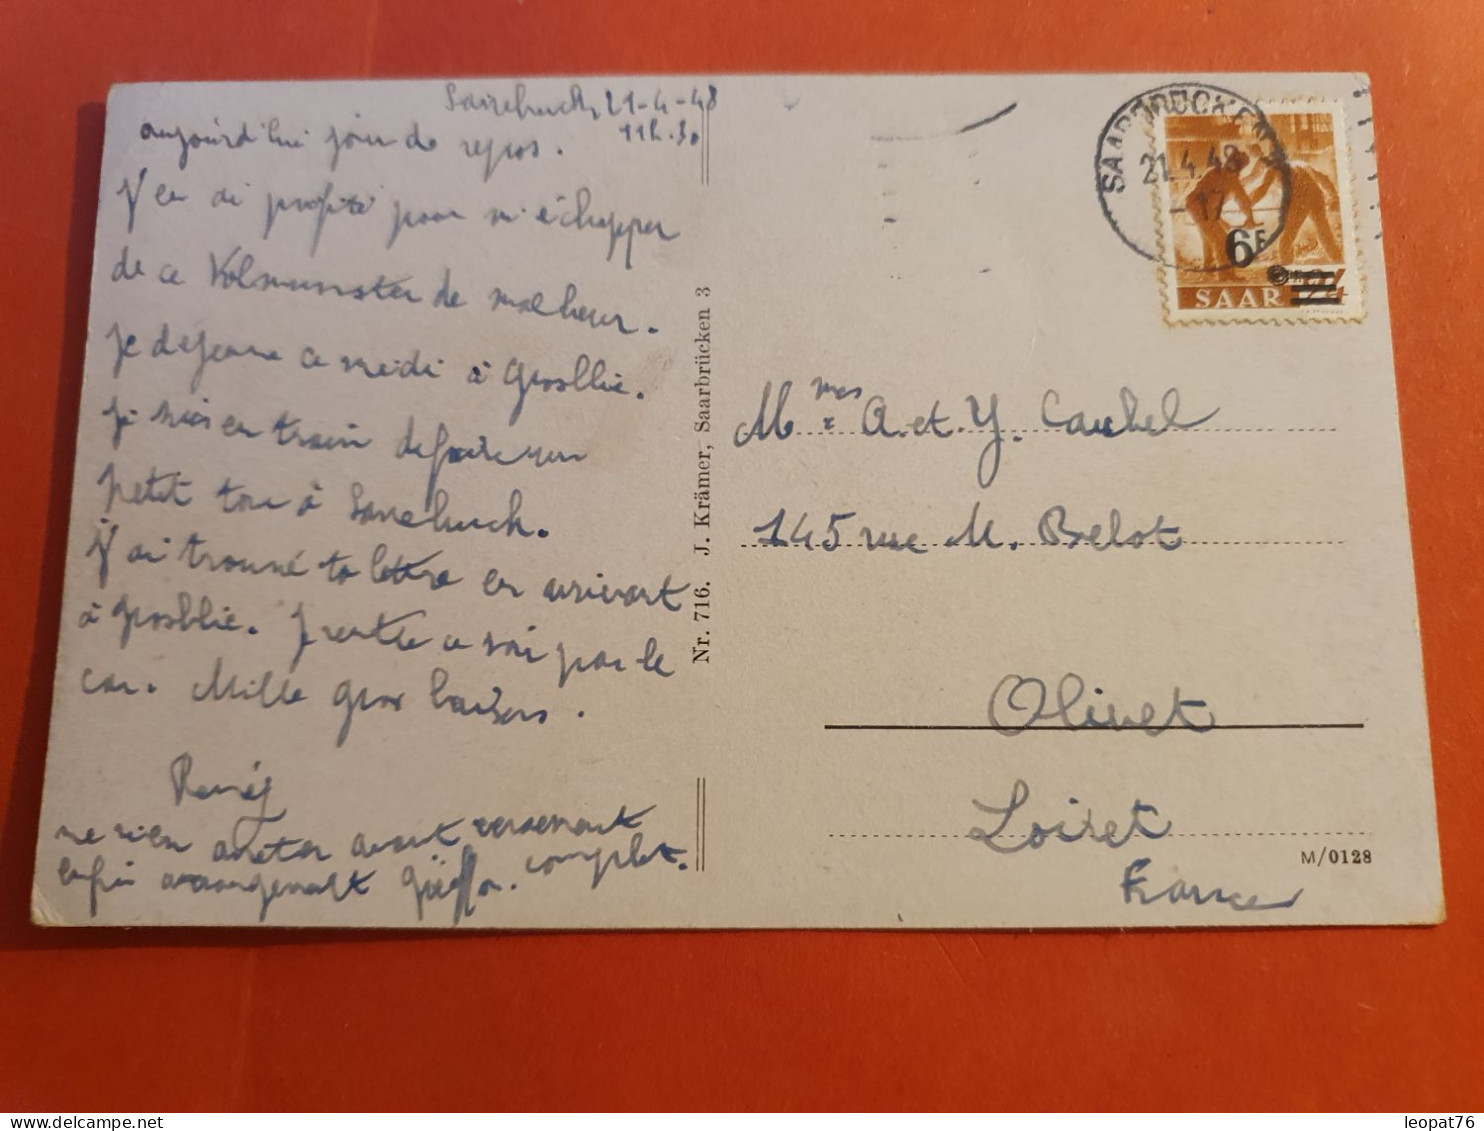 Sarrebruck 21-4-48
11h.30
aujourd'hui jour de repos.
j'en ai profité pour m'échapper
de ce Volmunster de malheur.
je déjeune ce midi à Grosblie.
je suis en train de faire un
petit tour à Sarrebruck.
j'ai trouvé ta lettre en arrivant
à Grosblie. Je rentre ce soir par le
car. Mille gros baisers.
René
ne rien acheter avant versement
enfin arrangement complet.
Nr. 716. J. Krämer, Saarbrücken 3
SAARBRÜCKEN
21.4.48
-17
6F
SAAR
Mmes A. et Y. Cauhel
145 rue M. Belot
Olivet
Loiret
France
M/0128
leopat76